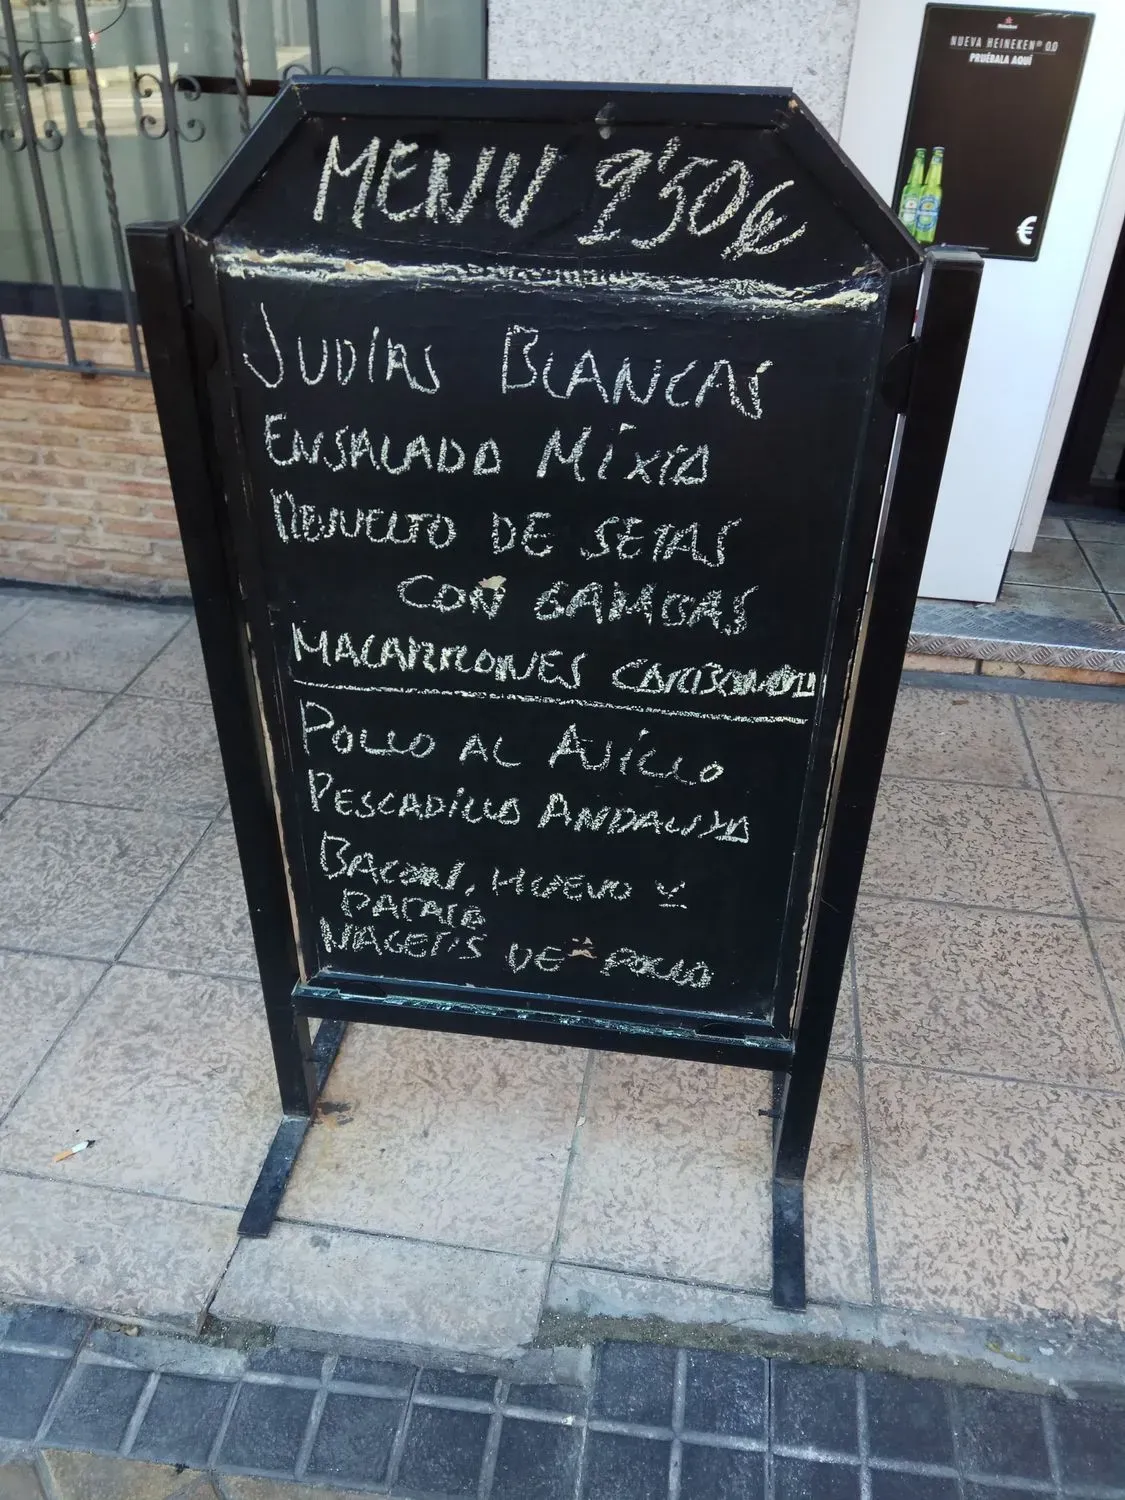 Heineken
NUEVA HEINEKEN® 0.0
PRUÉBALA AQUÍ
€
MENU 9'50€
JUDÍAS BLANCAS
ENSALADA MIXTA
REVUELTO DE SETAS
CON GAMBAS
MACARRONES CARBONARA
POLLO AL AJILLO
PESCADILLA ANDALUZA
BACON, HUEVO Y
PATATA
NAGETS DE POLLO